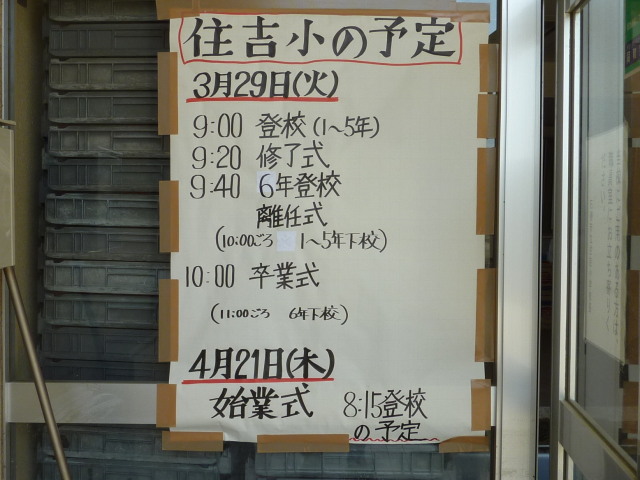 住吉小の予定
3月29日(火)
9:00 登校(1~5年)
9:20 修了式
9:40 6年登校
離任式
(10:00ごろ 1~5年下校)
10:00 卒業式
(11:00ごろ 6年下校)
4月21日(木)
始業式 8:15登校
の予定